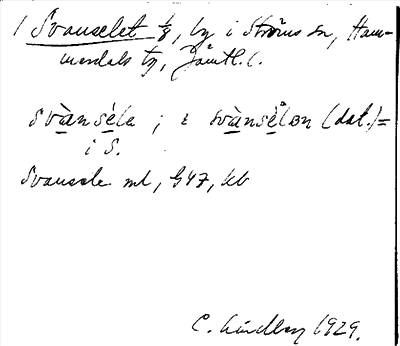 1 Svanselet 1/8, by i Ströms sn, Ham-
merdals tg, Jämtl. l.
svànséla ; i svànsèlon (dat.) =
i S.
Svansele ml, G47, kb
C. Lindberg 1929.